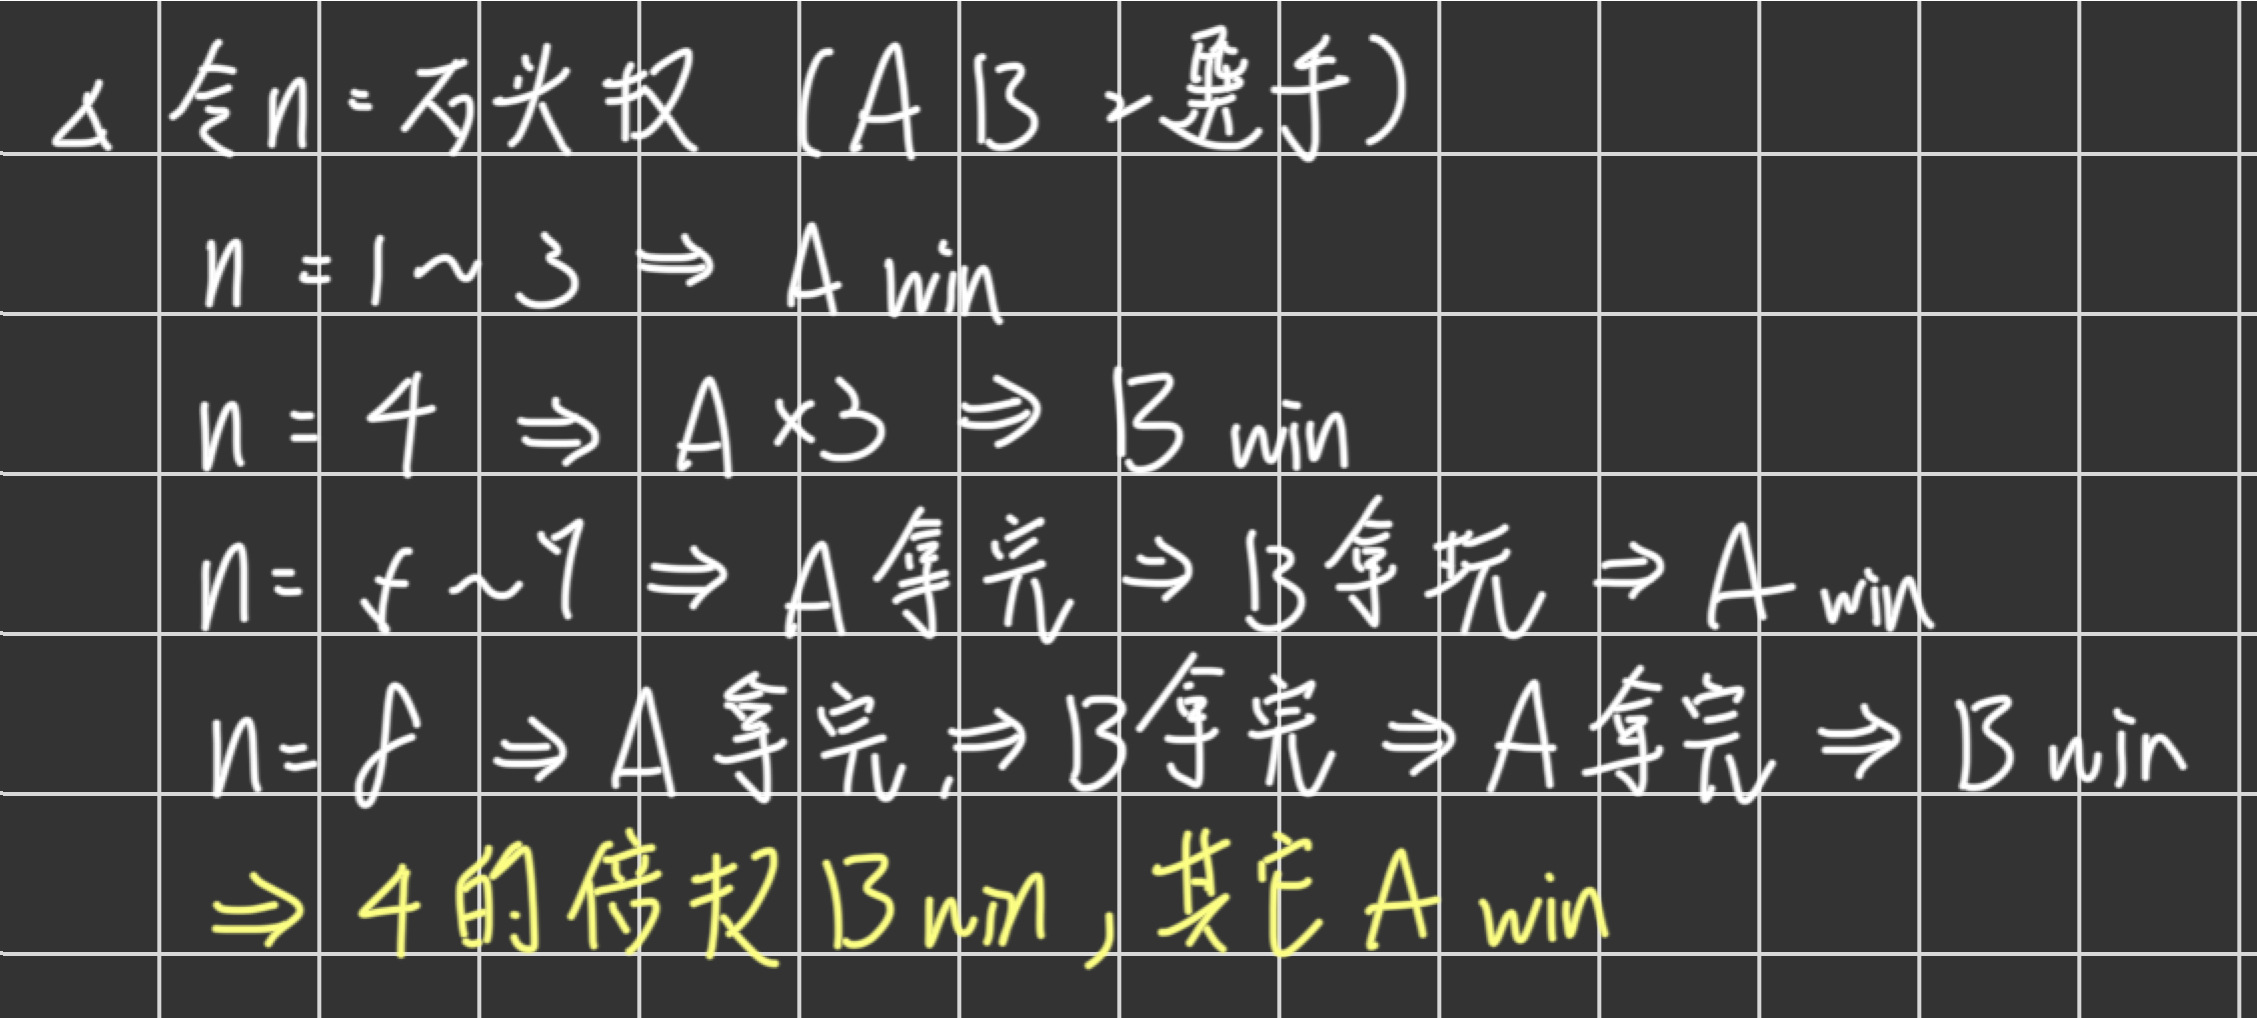 △ 令n = 石头数 (A B 2選手)
n = 1 ~ 3 ⇒ A win
n = 4 ⇒ A ×3 ⇒ B win
n = 5 ~ 7 ⇒ A 拿完 ⇒ B 拿完 ⇒ A win
n = 8 ⇒ A 拿完, ⇒ B 拿完 ⇒ A 拿完 ⇒ B win
⇒ 4 的倍数 B win, 其它 A win